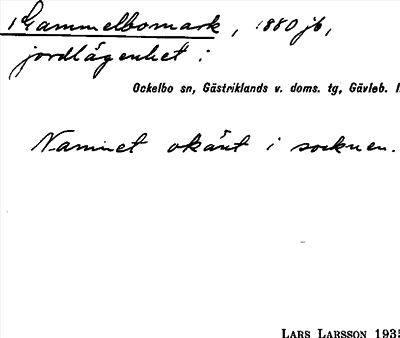 Gammelbomark, 1880 jb,
jordlägenhet:
Ockelbo sn, Gästriklands v. doms. tg, Gävleb.
Namnet okänt i socknen.
LARS LARSSON 193